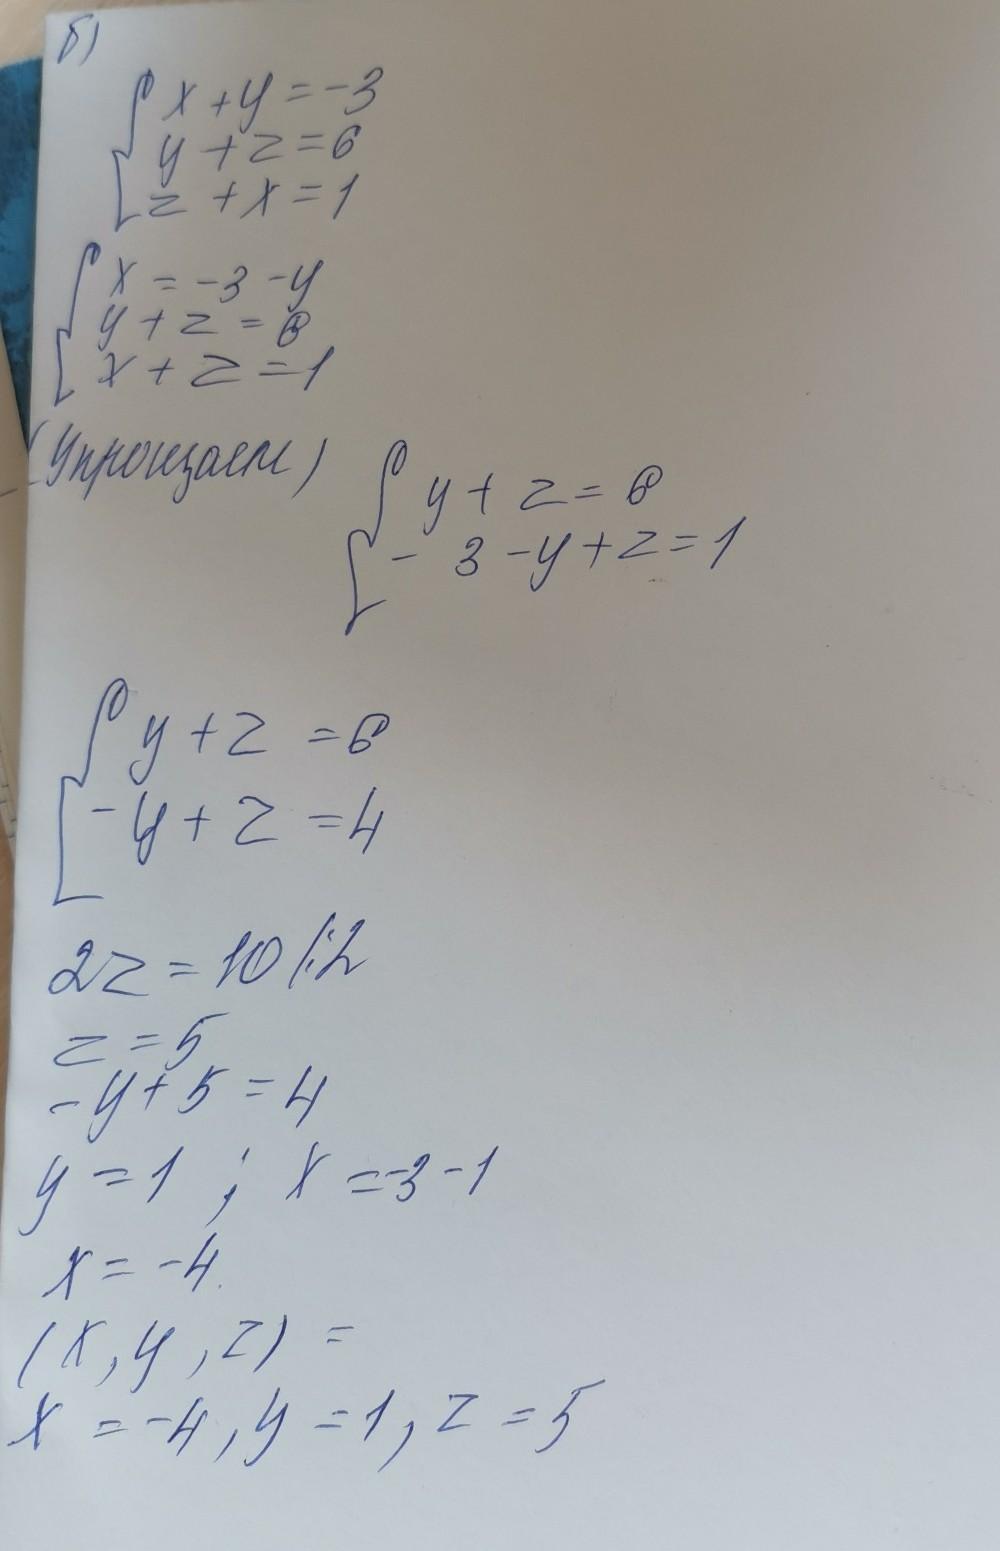 б)
x + y = -3
y + z = 6
z + x = 1
x = -3 - y
y + z = 6
x + z = 1
(Упрощаем)
y + z = 6
- 3 - y + z = 1
y + z = 6
- y + z = 4
2z = 10 |:2
z = 5
-y + 5 = 4
y = 1 ; x = -3 - 1
x = -4.
(x, y, z) =
x = -4, y = 1, z = 5